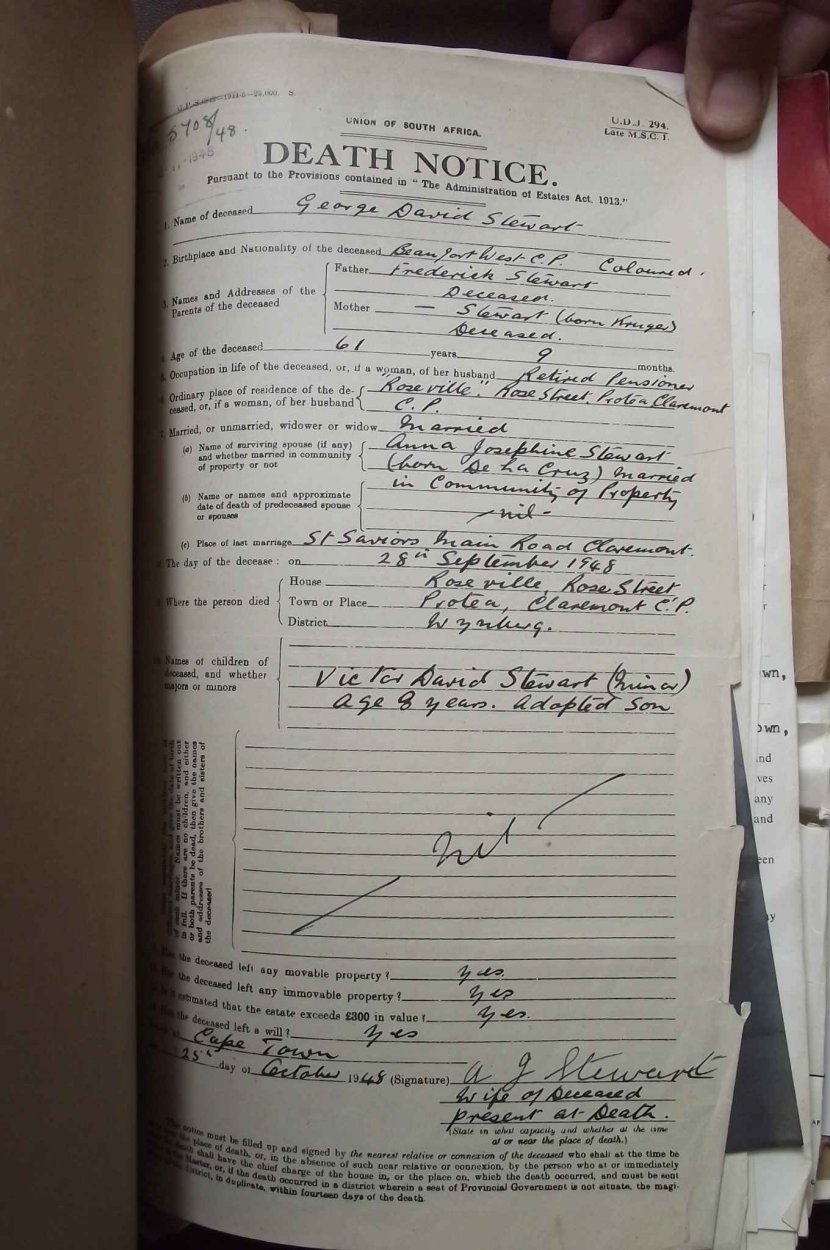 U.D.J. 294.
Late M.S.C. 1.
5708/48.
UNION OF SOUTH AFRICA.
DEATH NOTICE.
Pursuant to the Provisions contained in "The Administration of Estates Act, 1913."
1. Name of deceased George David Stewart
2. Birthplace and Nationality of the deceased Beaufort West C.P. Coloured.
3. Names and Addresses of the Parents of the deceased
Father Frederick Stewart
Deceased.
Mother — Stewart (born Kruger)
Deceased.
Age of the deceased 61 years 9 months.
Occupation in life of the deceased, or, if a woman, of her husband Retired Pensioner
Ordinary place of residence of the de- "Roseville" Rose Street, Protea Claremont
ceased, or, if a woman, of her husband C.P.
7. Married, or unmarried, widower or widow Married
(a) Name of surviving spouse (if any) Anna Josephine Stewart
and whether married in community (born De La Cruz) Married
of property or not
in Community of Property
(b) Name or names and approximate
date of death of predeceased spouse
or spouses
nil -
(c) Place of last marriage St Saviors Main Road Claremont.
The day of the decease: on 28th September 1948
Where the person died
House Roseville, Rose Street,
Town or Place Protea, Claremont C.P.
District Wynberg.
Names of children of
deceased, and whether
majors or minors
Victor David Stewart (minor)
age 8 years. adopted son
in full. If there are no children, and either
or both parents be dead, then give the names
and addresses of the brothers and sisters of
the deceased
nil
the deceased left any movable property? yes.
the deceased left any immovable property? yes
estimated that the estate exceeds £300 in value? yes.
the deceased left a will? yes
Cape Town
25th day of October 1948 (Signature) A J Stewart
Wife of Deceased
present at Death.
(State in what capacity and whether at the time
at or near the place of death.)
This notice must be filled up and signed by the nearest relative or connexion of the deceased who shall at the time be
the place of death, or, in the absence of such near relative or connexion, by the person who at or immediately
death shall have the chief charge of the house in, or the place on, which the death occurred, and must be sent
Master, or, if the death occurred in a district wherein a seat of Provincial Government is not situate, the magi-
district, in duplicate, within fourteen days of the death.
wn,
own,
nd
ves
any
and
een